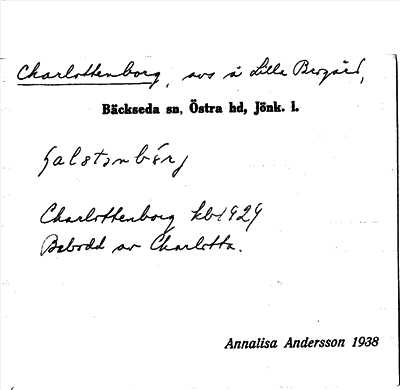 Charlottenborg, avs å Lilla Bergård,
Bäckseda sn, Östra hd, Jönk. l.
Charlottenborg kb 1929
Bebodd av Charlotta.
Annalisa Andersson 1938